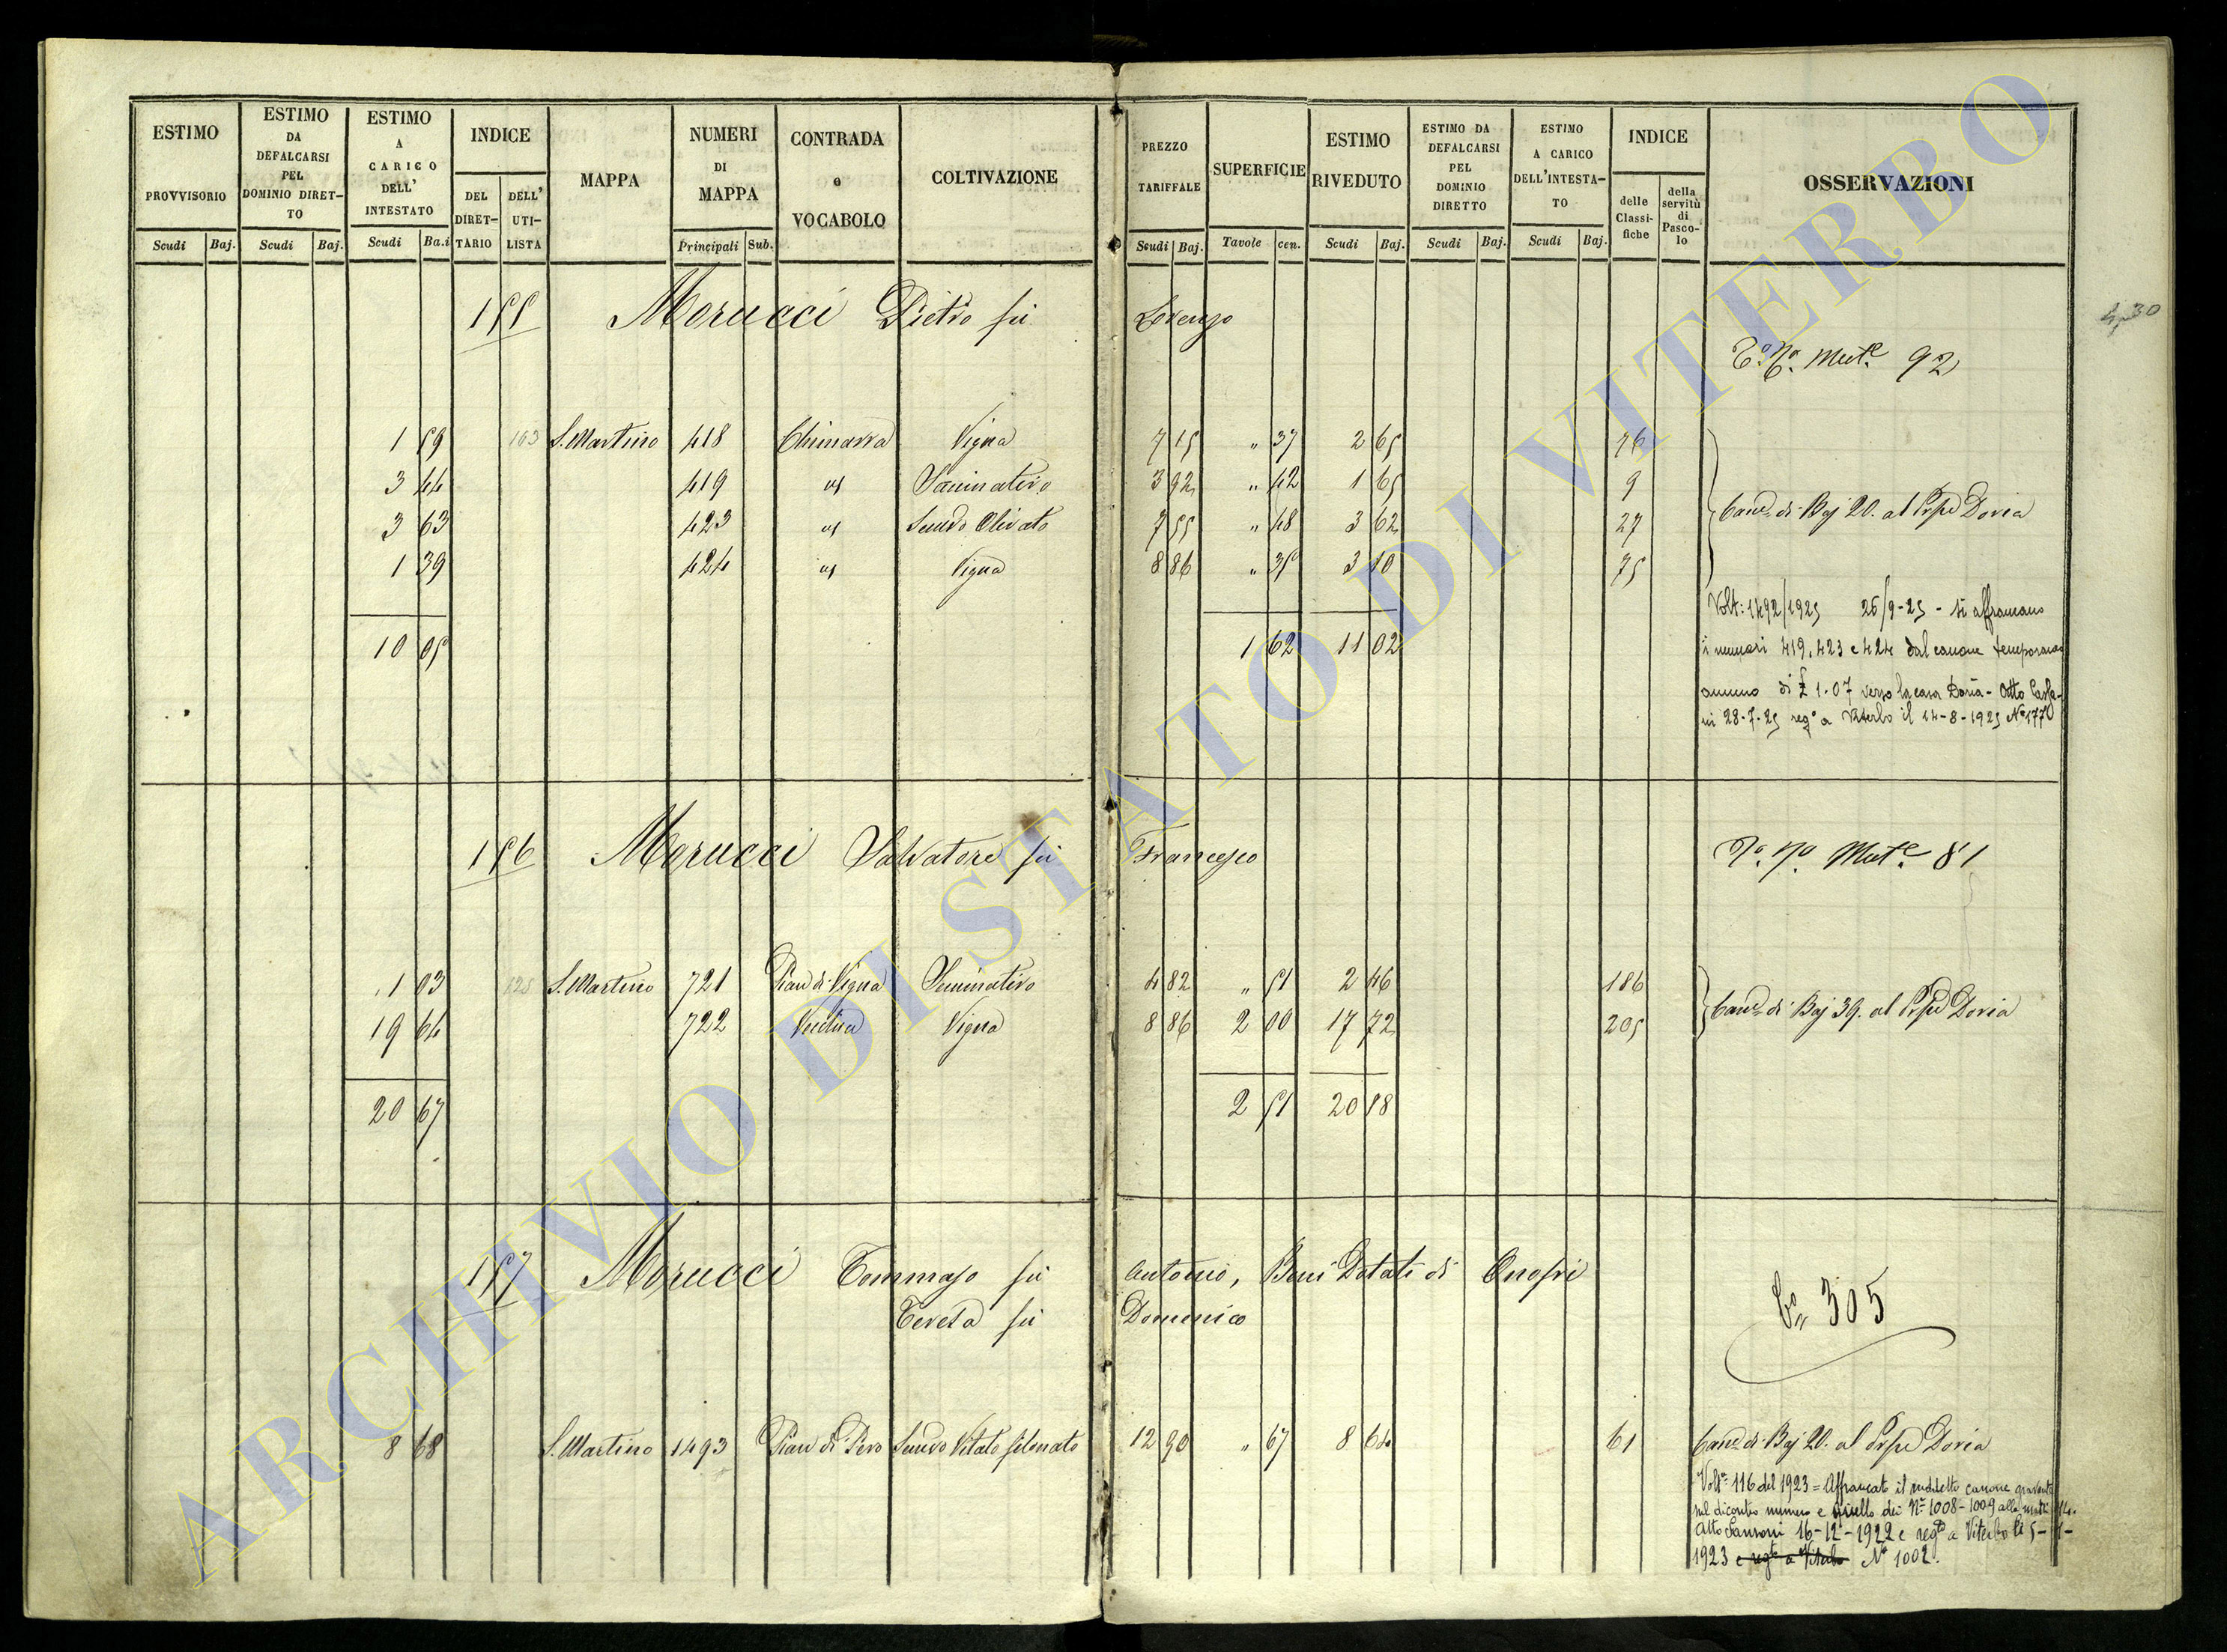 ESTIMO PROVVISORIO Scudi Baj.
ESTIMO DA DEFALCARSI PEL DOMINIO DIRETTO Scudi Baj.
ESTIMO A CARICO DELL' INTESTATO Scudi Ba.i
INDICE DEL DIRETTARIO DELL' UTILISTA
MAPPA
NUMERI DI MAPPA Principali Sub.
CONTRADA e VOCABOLO
COLTIVAZIONE
PREZZO TARIFFALE Scudi Baj.
SUPERFICIE Tavole cen.
ESTIMO RIVEDUTO Scudi Baj.
ESTIMO DA DEFALCARSI PEL DOMINIO DIRETTO Scudi Baj.
ESTIMO A CARICO DELL'INTESTATO Scudi Baj.
INDICE delle Classifiche della servitù di Pascolo
OSSERVAZIONI
155 Morucci Pietro fu Lorenzo
4,30
Mut.e 92
1 59 163 S. Martino 418 Chimarra Vigna 7 15 " 37 2 65 76
3 44 419 Seminativo 3 92 " 42 1 65 9
3 63 423 Semvo Olivato 7 55 " 48 3 62 27
Cane di Baj 20. al Prpe Doria
1 39 424 Vigna 8 86 " 35 3 10 75
10 05 1 62 11 02
Volt: 1492/1925 26/9-25 - Si affrancano
i numeri 419, 423 e 424 dal canone temporaneo
annuo di £ 1.07 verso la casa Doria - Atto
28-7-25 reg.o a Viterbo il 14-8-1925 No 1770
156 Morucci Salvatore fu Francesco
Mut.e 81
1 03 125 S. Martino 721 Pian di Vigna Seminativo 4 82 " 51 2 46 186
Cane di Baj 39. al Prpe Doria
19 64 722 Vigna 8 86 2 00 17 72 205
20 67 2 51 20 18
157 Morucci Tommaso fu Antonio, Beni Dotali di Onofri
Teresa fu Domenico
305
8 68 S. Martino 1493 Pian di Pero Semvo Vitato 12 90 " 67 8 64 61 Cane di Baj 20. al Prpe Doria
Volt.a 116 del 1923 = Affrancato il suddetto canone gravante
sul dicontro numero e quello dei N.i 1008-1009 alla
Atto Sansoni 16-12-1922 e reg.to a Viterbo li 5-
1923 e reg.to a Viterbo No 1002.
ARCHIVIO DI STATO DI VITERBO